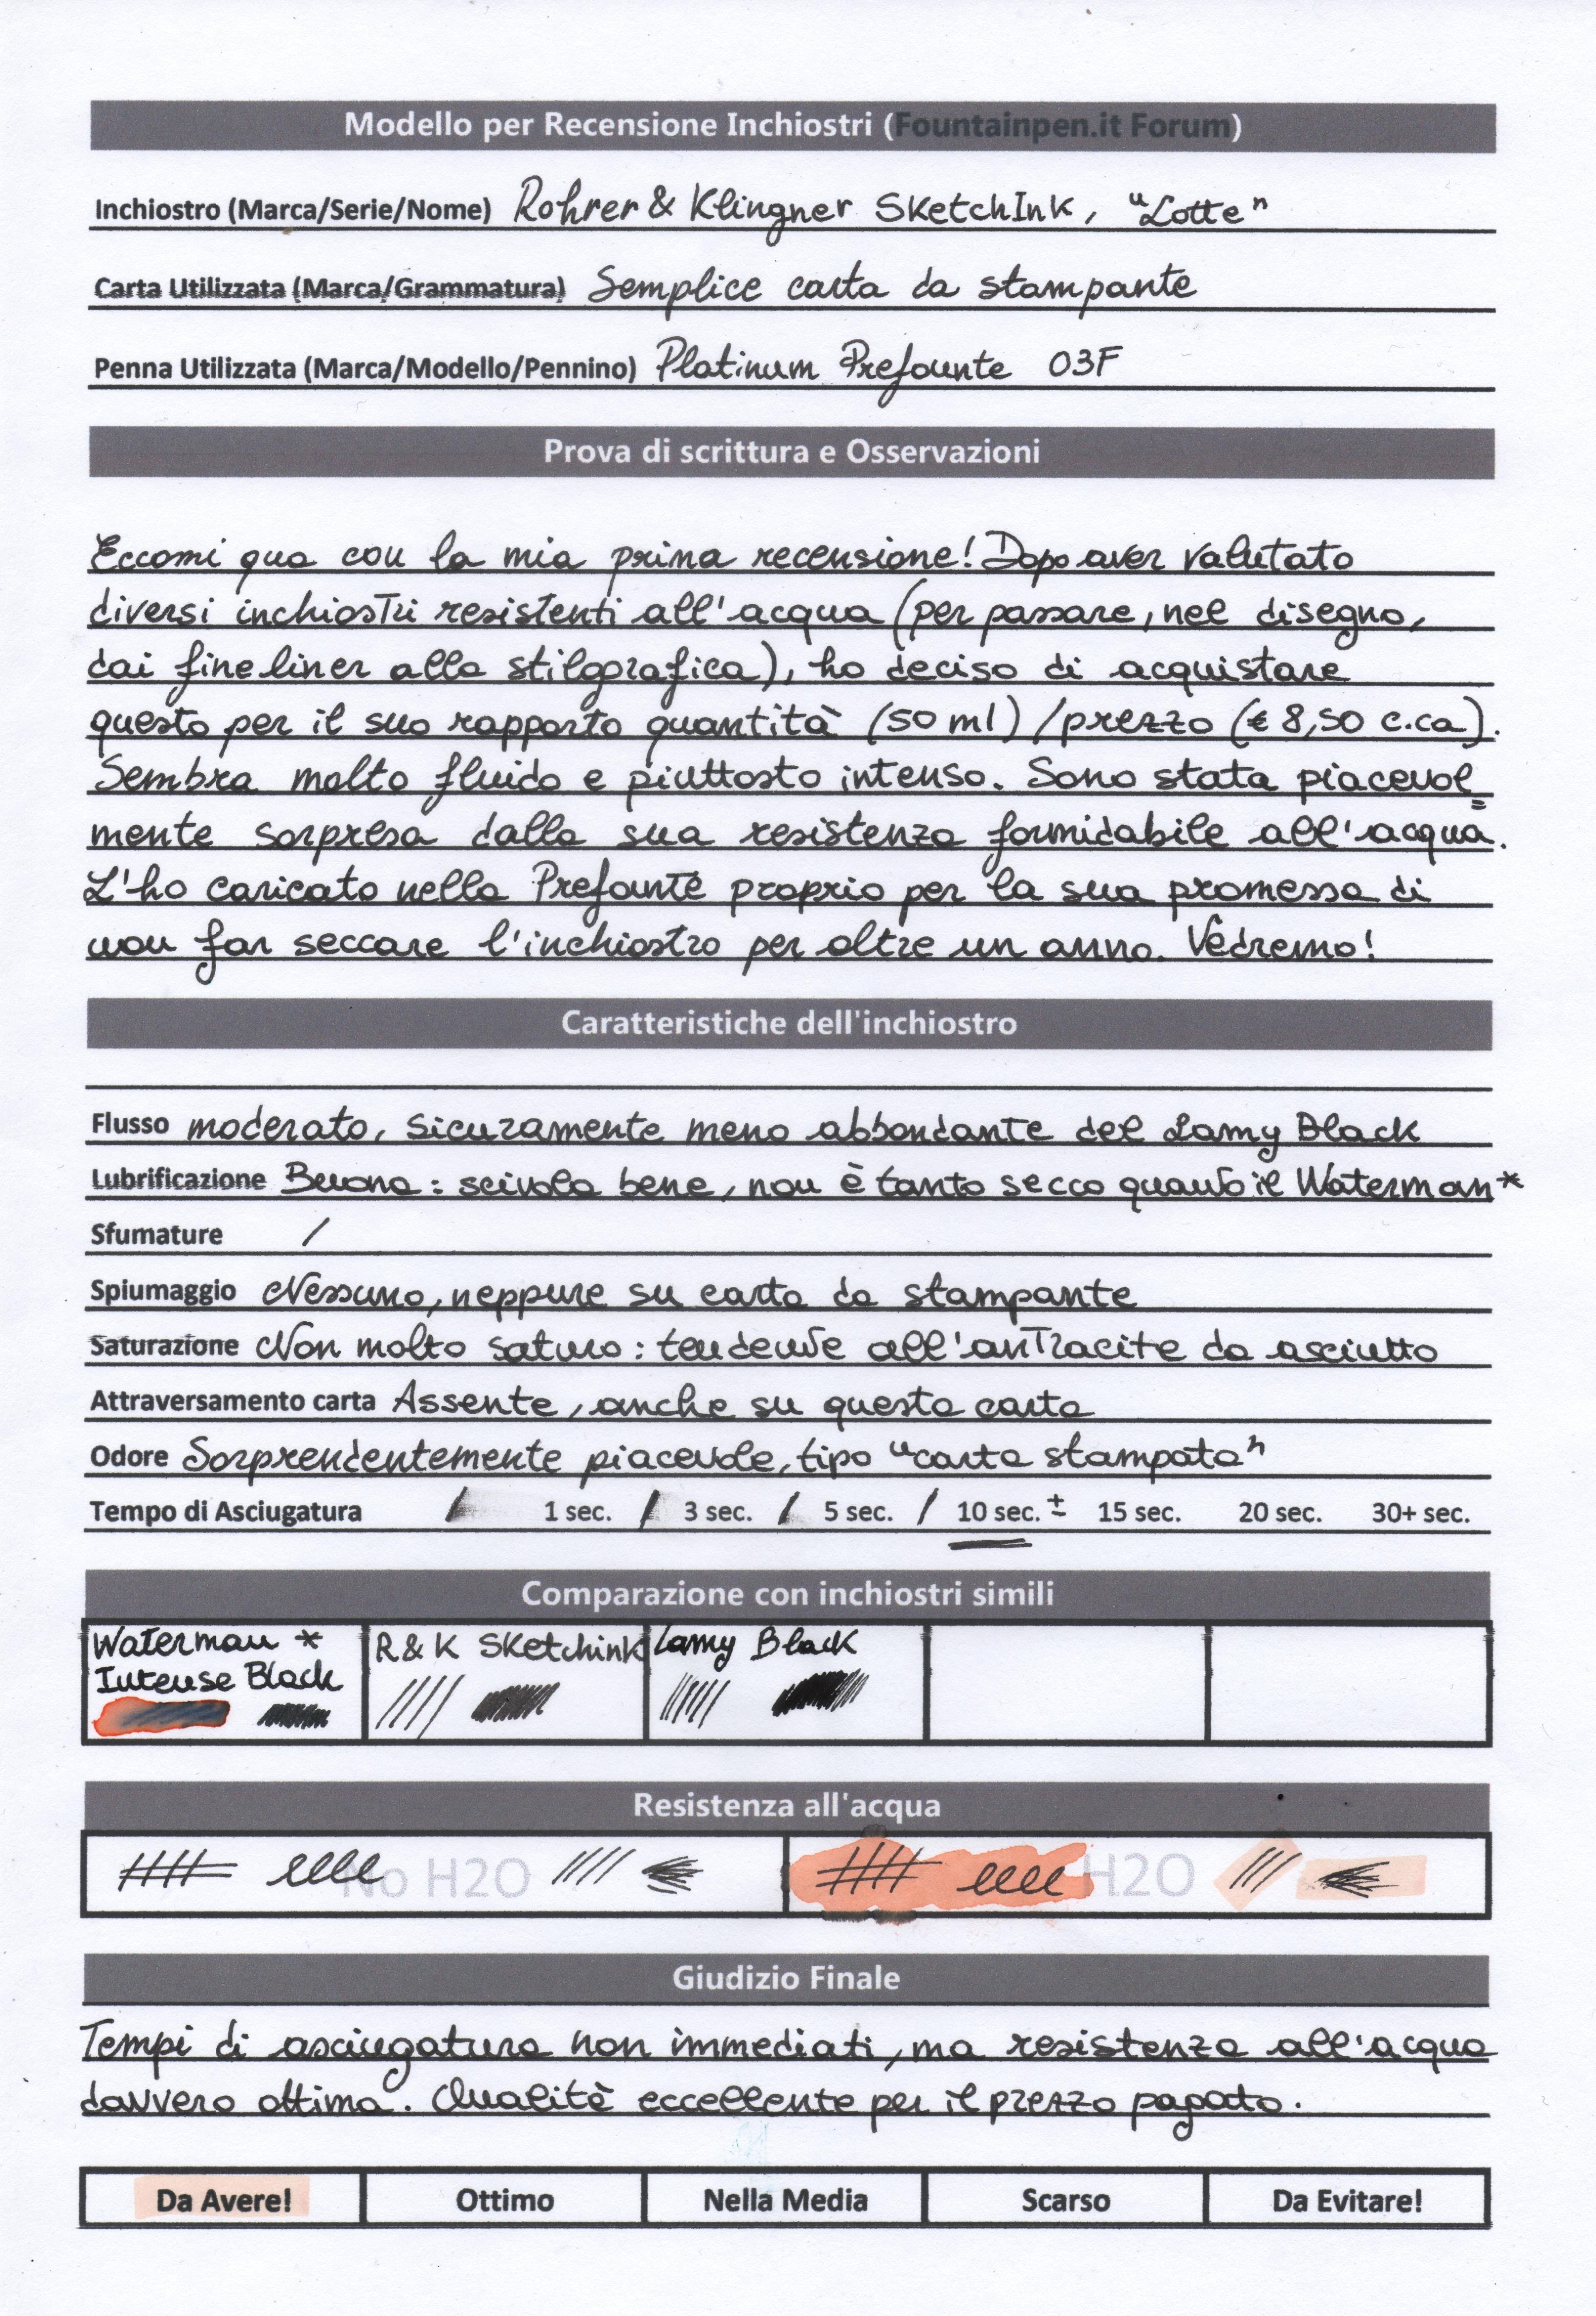 Modello per Recensione Inchiostri (Fountainpen.it Forum)
Inchiostro (Marca/Serie/Nome) Rohrer & Klingner SketchInk, "Lotte"
Carta Utilizzata (Marca/Grammatura) Semplice carta da stampante
Penna Utilizzata (Marca/Modello/Pennino) Platinum Prefounte 03F
Prova di scrittura e Osservazioni
Eccomi qua con la mia prima recensione! Dopo aver valutato
diversi inchiostri resistenti all'acqua (per passare, nel disegno,
dai fineliner alla stilografica), ho deciso di acquistare
questo per il suo rapporto quantità (50 ml) /prezzo (€ 8,50 c.ca).
Sembra molto fluido e piuttosto intenso. Sono stata piacevol=
mente sorpresa dalla sua resistenza formidabile all'acqua.
L'ho caricato nella Prefounte proprio per la sua promessa di
non far seccare l'inchiostro per oltre un anno. Vedremo!
Caratteristiche dell'inchiostro
Flusso moderato, sicuramente meno abbondante del Lamy Black
Lubrificazione Buona: scivola bene, non è tanto secco quanto il Waterman*
Sfumature /
Spiumaggio Nessuno, neppure su carta da stampante
Saturazione Non molto saturo: tendente all'antracite da asciutto
Attraversamento carta Assente, anche su questa carta
Odore Sorprendentemente piacevole, tipo "carta stampata"
Tempo di Asciugatura / 1 sec. / 3 sec. / 5 sec. / 10 sec. ± 15 sec. 20 sec. 30+ sec.
Comparazione con inchiostri simili
Waterman * R & K SketchInk Lamy Black
Intense Black
Resistenza all'acqua
No H2O H2O
Giudizio Finale
Tempi di asciugatura non immediati, ma resistenza all'acqua
davvero ottima. Qualità eccellente per il prezzo pagato.
Da Avere! Ottimo Nella Media Scarso Da Evitare!